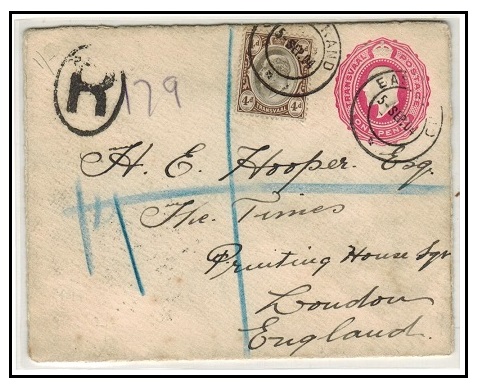 R
179
4d 4d
TRANSVAAL
RAND
5 SEP 04
TRANSVAAL POSTAGE
ONE PENNY
EA
5 SEP 04
H. E. Hooper Esq.
The Times
Printing House Sqr
London
England.